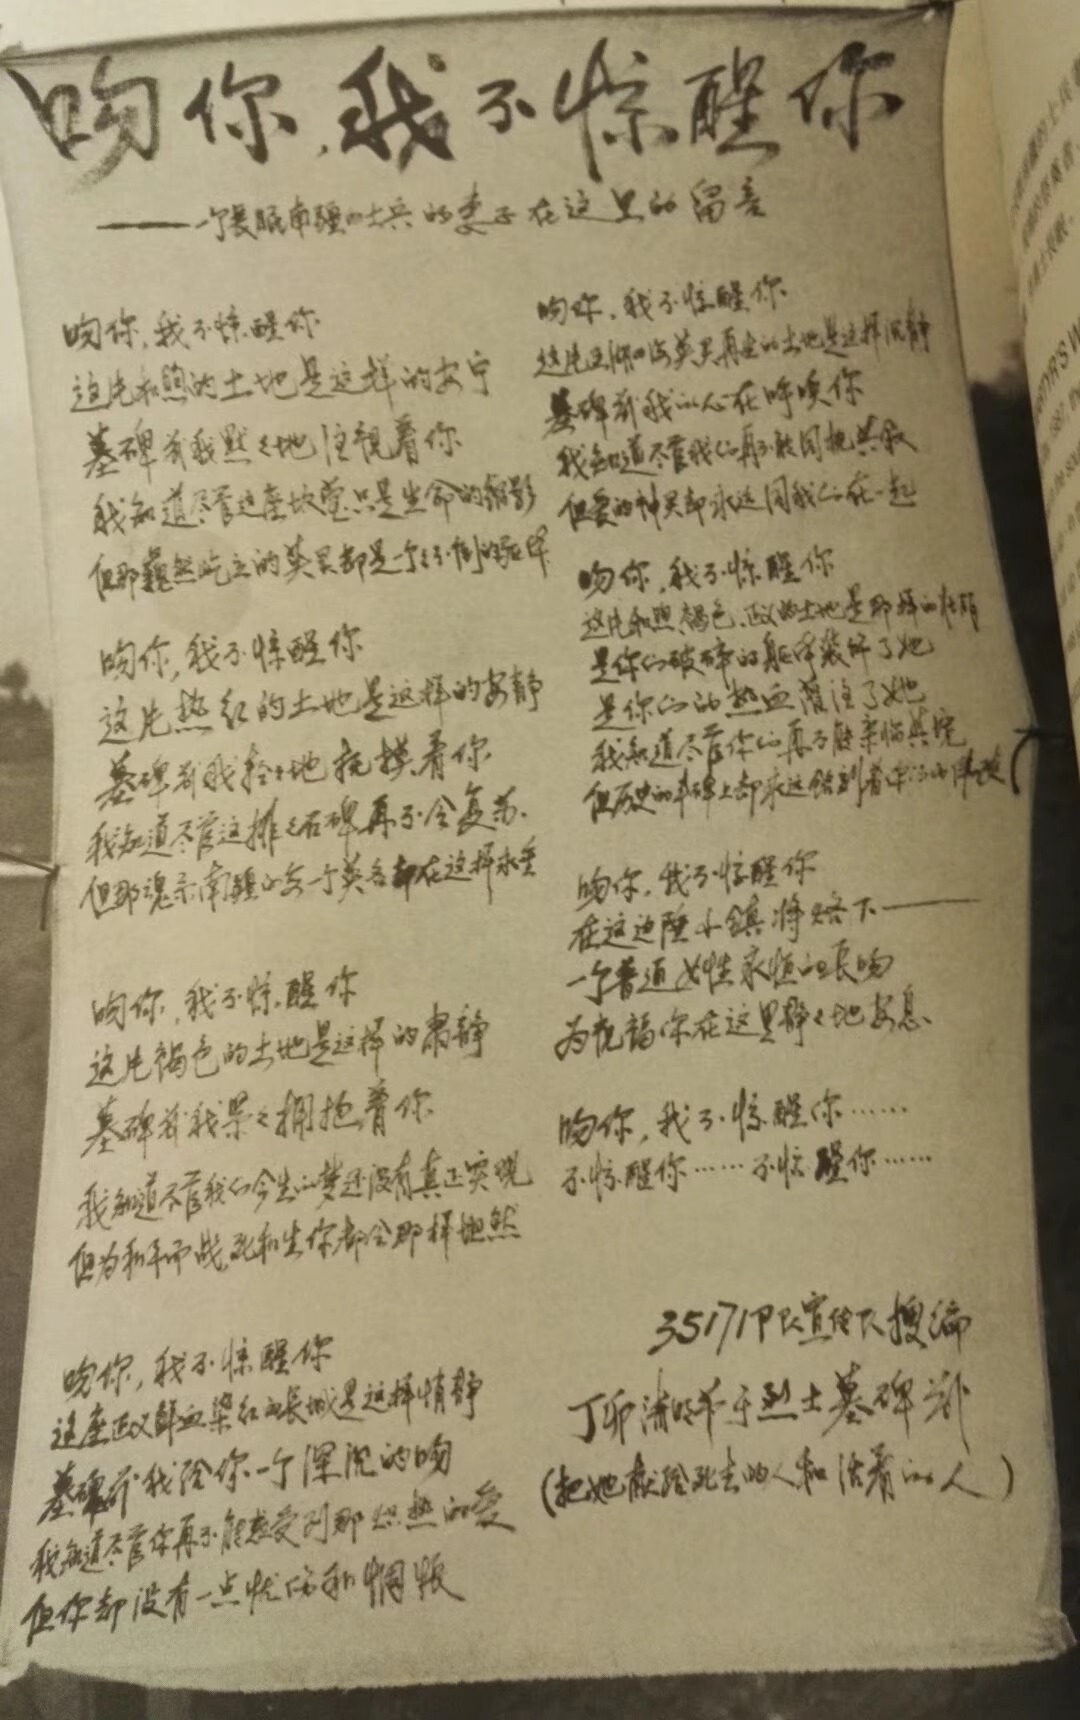 吻你,我不惊醒你
——一个长眠南疆的士兵的妻子在这里的留言
吻你,我不惊醒你
这片和煦的土地是这样的安宁
墓碑前我默々地注视着你
我知道尽管这座坟茔只是生命的缩影
但那巍然屹立的英灵却是一个不倒的
吻你,我不惊醒你
这片热红的土地是这样的安静
墓碑前我轻々地抚摸着你
我知道尽管这排々石碑再不会复苏
但那魂系南疆的每一个英名却在这样永垂
吻你,我不惊醒你
这片褐色的土地是这样的肃静
墓碑前我紧々拥抱着你
我知道尽管我们今生的梦还没有真正实现
但为和平而战,死和生你都会那样坦然
吻你,我不惊醒你
这座正义鲜血染红的长城是这样悄静
墓碑前我给你一个深沉的吻
我知道尽管你再不能感受到那炽热的爱
但你却没有一点忧伤和惆怅
吻你,我不惊醒你
这片英灵再生的土地是这样沉静
墓碑前我的心在呼唤你
我知道尽管我们再不能同枕共
但爱的神灵却永远同我们在一起
吻你,我不惊醒你
这片和煦、褐色、正义的土地是那样的壮丽
是你们破碎的躯体装饰了她
是你们的热血灌注了她
我知道尽管你们再不能亲临其境
但历史的丰碑上却永远镌刻着
吻你,我不惊醒你
在这边陲小镇将烙下——
一个普通女性永恒的长吻
为祝福你在这里静々地安息
吻你,我不惊醒你……
不惊醒你……不惊醒你……
35171部队宣传队搜编
丁卯清明节于烈士墓碑前
(把她献给死去的人和活着的人)